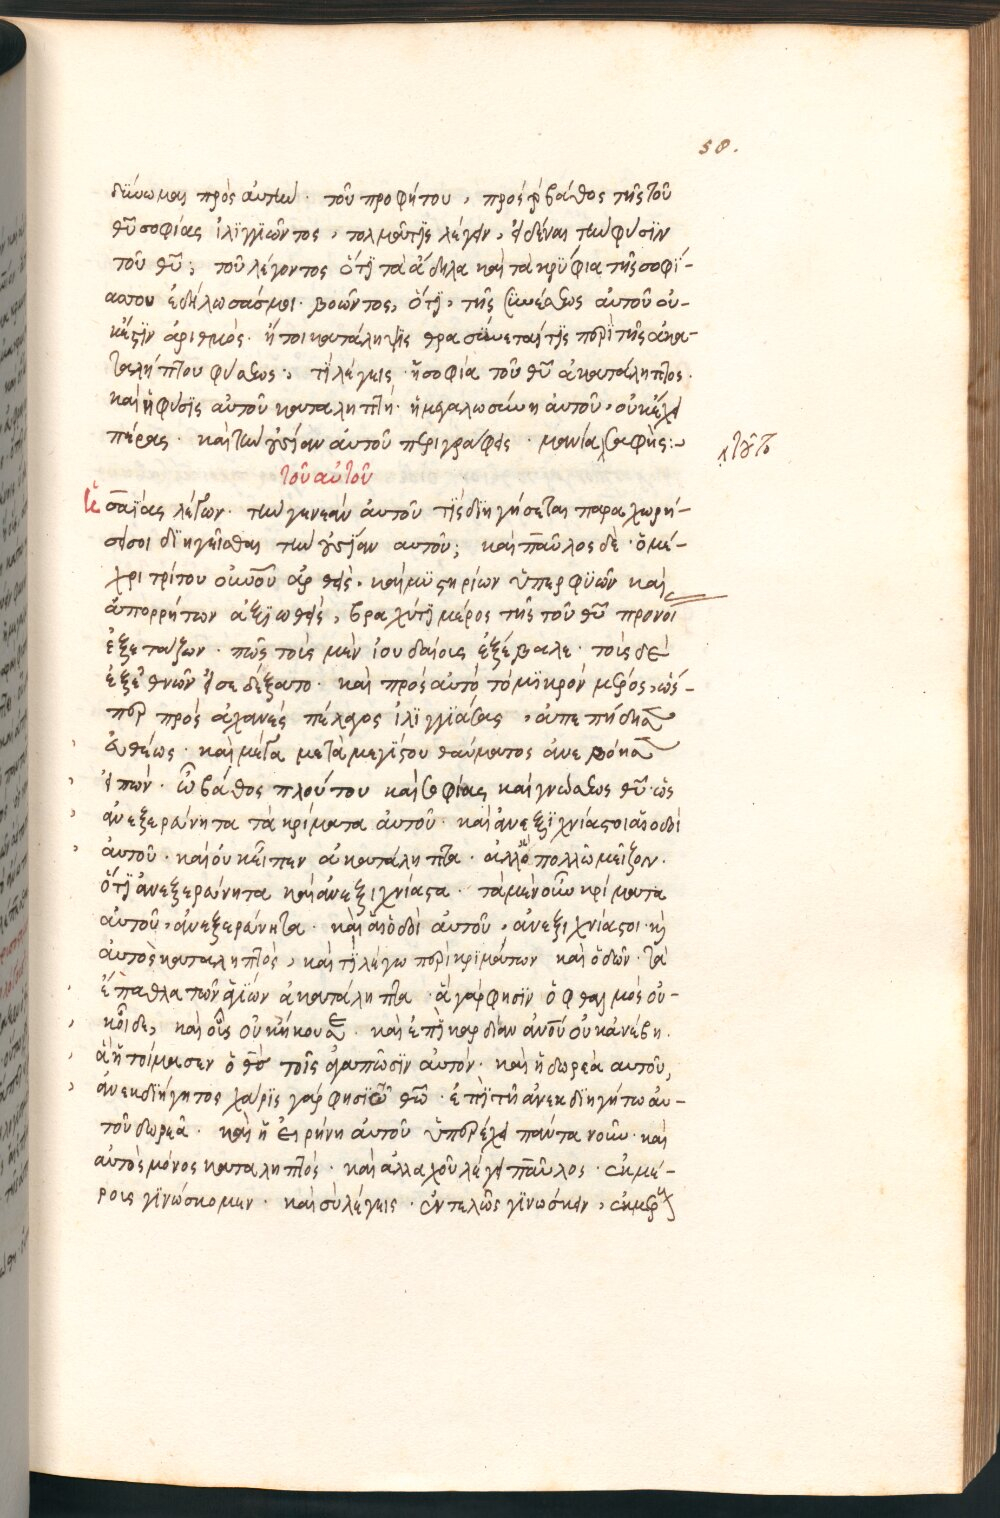 58.
δύνωμαι πρὸς αὐτήν· τοῦ προφήτου, πρὸς τὸ βάθος τῆς τοῦ
θυ σοφίας ἰλιγγιῶντος, τολμᾶ τὶς λέγειν, εἰδέναι τὴν φύσιν
τοῦ θυ; τοῦ λέγοντος ὅτι τὰ ἄδηλα καὶ τὰ κρύφια τῆς σοφί-
ας σου ἐδήλωσάς μοι· βοῶντος, ὅτι, τῆς συνέσεως αὐτοῦ οὐ-
κέστιν ἀριθμός· ἤτοι κατάληψις θρασύνεταί τις περὶ τῆς ἀκα-
ταλήπτου φύσεως·, τί λέγεις· ἡ σοφία τοῦ θυ ἀκατάληπτος·
καὶ ἡ φύσις αὐτοῦ καταληπτή· ἡ μεγαλωσύνη αὐτοῦ, οὐκ ἔχει
πέρας· καὶ τὴν οὐσίαν αὐτοῦ περιγράφεις· μανία σαφής:
τοῦτο
τοῦ αὐτοῦ
Ἡσαΐας λέγων· τὴν γενεὰν αὐτοῦ τίς διηγήσεται παραχωρή-
σει σοι διηγεῖσθαι τὴν οὐσίαν αυτοῦ; καὶ παῦλος δὲ· ὁ μέ-
χρι τρίτου ουνου ἀρθεὶς· καὶ μυστηρίων ὑπερφυῶν καὶ
ἀπορρήτων ἀξιωθεὶς, βραχύτι μέρος τῆς τοῦ θυ προνοί
ἐξετάζων· πῶς τοὺς μὲν ἰουδαίους ἐξέβαλε· τοὺς δὲ
ἐξ ἐθνῶν εἰσεδέξατο· καὶ πρὸς αὐτὸ τὸ μικρὸν μέρος, ὡς-
περ πρὸς ἀχανὲς πέλαγος ἰλιγγιάσας, ἀπεπήδησεν
εὐθέως· καὶ μέγα μετὰ μεγίστου θαύματος ἀνεβόησεν
εἰπών· ὦ βάθος πλούτου καὶ σοφίας καὶ γνώσεως θυ· ὡς
ἀνεξερεύνητα τὰ κρίματα αὐτοῦ· καὶ ἀνεξιχνίαστοι αἱ ὁδοὶ
αὐτοῦ· καὶ οὐκ εἶπεν ἀκατάληπτα· ἀλλ' ὃ πολλῶ μεῖζον·
ὅτι ἀνεξερεύνητα καὶ ἀνεξιχνίαστα· τὰ μὲν οὖν κρίματα
αὐτοῦ, ἀνεξερεύνητα· καὶ αἱ ὁδοὶ αὐτοῦ, ἀνεξιχνίαστοι· καὶ
αὐτὸς καταληπτὸς, καὶ τί λέγω περὶ κριμάτων καὶ ὁδῶν· τὰ
ἔπαθλα τῶν ἁγίων ἀκατάληπτα· ἃ γάρ φησιν ὀφθαλμὸς οὐ-
κ οἶδε, καὶ οὖς οὐκ ἤκουσεν· καὶ ἐπὶ καρδίαν ανου οὐκ ἀνέβη·
ἃ ἡτοίμασεν ὁ θς τοῖς ἀγαπῶσιν αὐτόν· καὶ ἡ δωρεὰ αυτοῦ,
ἀνεκδιήγητος χάρις γάρ φησι τῶ θω· ἐπὶ τῆ ἀνεκδιηγήτω αὐ-
τοῦ δωρεᾶ· καὶ ἡ εἰρήνη αὐτοῦ ὑπερέχει πάντα νοῦν· καὶ
αὐτὸς μόνος καταληπτός· καὶ ἀλλαχοῦ λέγει παῦλος· ἐκ μέ-
ρους γινώσκομεν· καὶ σὺ λέγεις· ἐντελῶς γινώσκειν, ἐκ μέρους